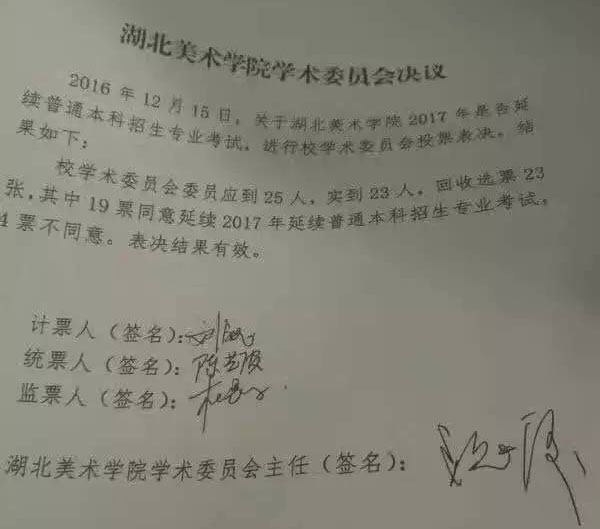 湖北美术学院学术委员会决议
2016 年 12 月 15 日，关于湖北美术学院 2017 年是否延
续普通本科招生专业考试，进行校学术委员会投票表决。结
果如下：
校学术委员会委员应到 25 人，实到 23 人，回收选票 23
张，其中 19 票同意延续 2017 年延续普通本科招生专业考试。
4 票不同意。表决结果有效。
计票人（签名）：
统票人（签名）：
监票人（签名）：
湖北美术学院学术委员会主任（签名）：